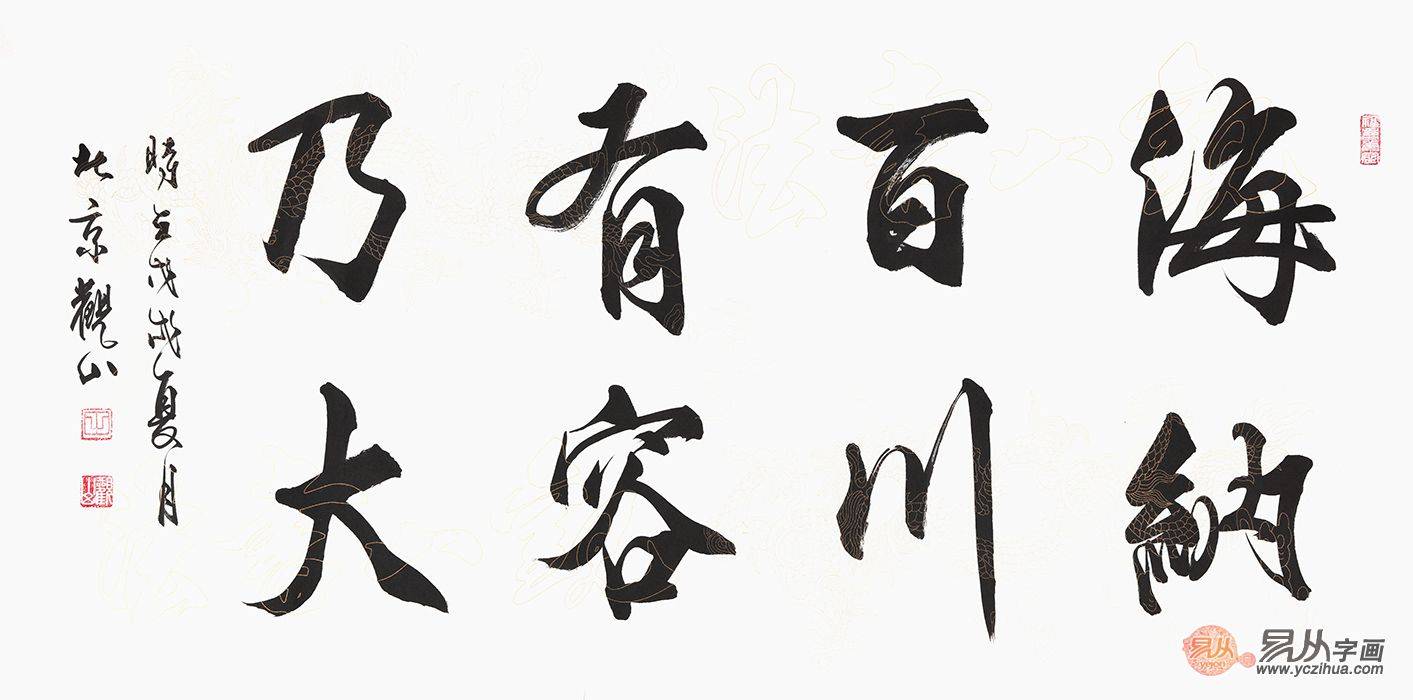 海納
百川
有容
乃大
時在戊戌夏月
北京觀山
易从
易从字画
www.yczihua.com